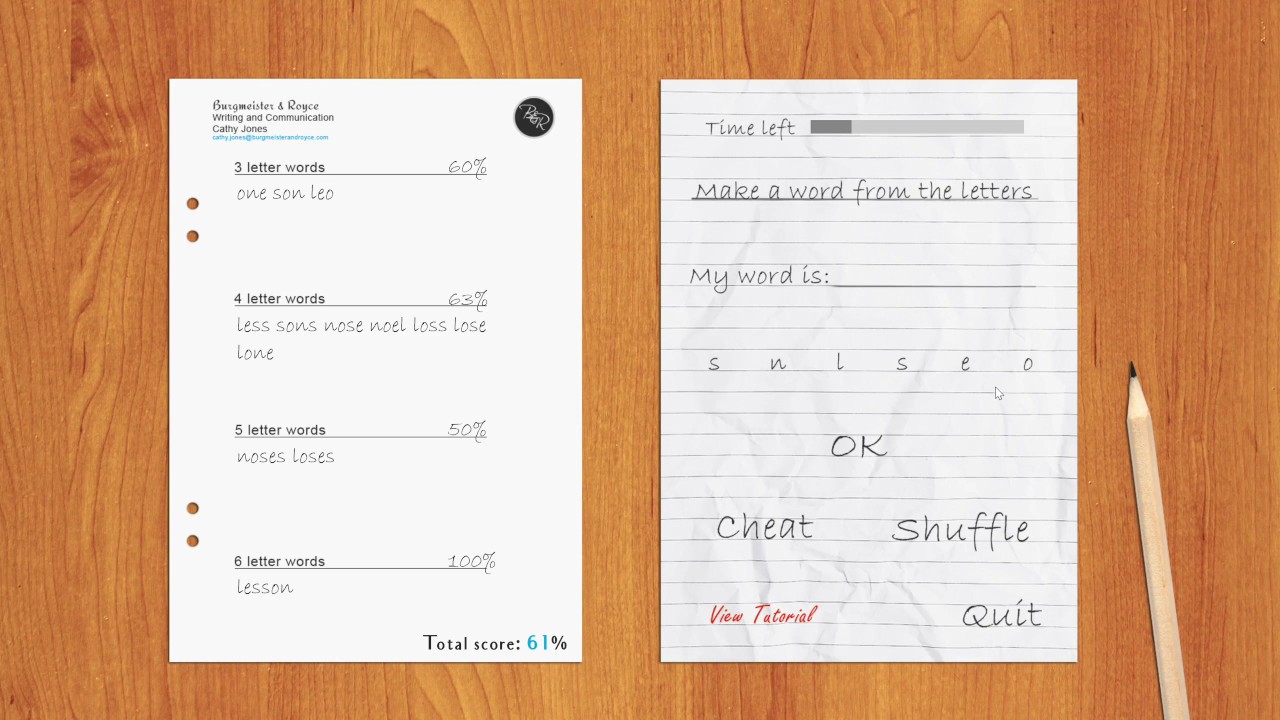 Burgmeister & Royce
Writing and Communication
Cathy Jones
cathy.jones@burgmeisterandroyce.com
B&R
3 letter words 60%
one son leo
4 letter words 63%
less sons nose noel loss lose
lone
5 letter words 50%
noses loses
6 letter words 100%
lesson
Total score: 61%
Time left
Make a word from the letters
My word is:
s n l s e o
OK
Cheat Shuffle
View Tutorial Quit